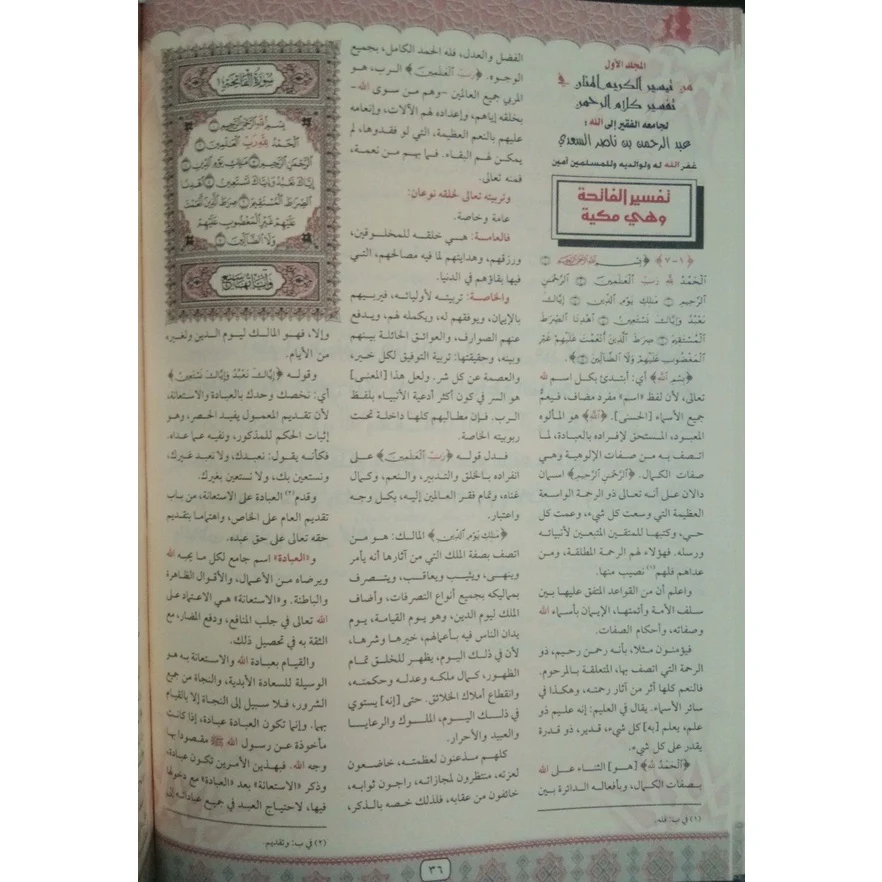 المجلد الأول
من تيسير الكريم المنان في
تفسير كلام الرحمن
لجامعه الفقير إلى الله :
عبد الرحمن بن ناصر السعدي
غفر الله له ولوالديه وللمسلمين آمين
تفسير الفاتحة
وهي مكية
﴿١-٧﴾ ﴿بِسْمِ اللَّهِ الرَّحْمَٰنِ الرَّحِيمِ ۝
الْحَمْدُ لِلَّهِ رَبِّ الْعَالَمِينَ ۝ الرَّحْمَٰنِ
الرَّحِيمِ ۝ مَالِكِ يَوْمِ الدِّينِ ۝ إِيَّاكَ
نَعْبُدُ وَإِيَّاكَ نَسْتَعِينُ ۝ اهْدِنَا الصِّرَاطَ
الْمُسْتَقِيمَ ۝ صِرَاطَ الَّذِينَ أَنْعَمْتَ عَلَيْهِمْ غَيْرِ
الْمَغْضُوبِ عَلَيْهِمْ وَلَا الضَّالِّينَ ۝﴾.
﴿بِسْمِ اللَّهِ﴾ أي: أبتدئ بكل اسم لله
تعالى، لأن لفظ «اسم» مفرد مضاف، فيعمُّ
جميع الأسماء [الحسنى]. ﴿اللَّهِ﴾ هو المألوه
المعبود، المستحق لإفراده بالعبادة، لما
اتصف به من صفات الإلوهية وهي
صفات الكمال. ﴿الرَّحْمَٰنِ الرَّحِيمِ﴾ اسمان
دالان على أنه تعالى ذو الرحمة الواسعة
العظيمة التي وسعت كل شيء، وعمت كل
حي، وكتبها للمتقين المتبعين لأنبيائه
ورسله. فهؤلاء لهم الرحمة المطلقة، ومن
عداهم فلهم(١) نصيب منها.
واعلم أن من القواعد المتفق عليها بين
سلف الأمة وأئمتها، الإيمان بأسماء الله
وصفاته، وأحكام الصفات.
فيؤمنون مثلا، بأنه رحمن رحيم، ذو
الرحمة التي اتصف بها، المتعلقة بالمرحوم.
فالنعم كلها أثر من آثار رحمته، وهكذا في
سائر الأسماء. يقال في العليم: إنه عليم ذو
علم، يعلم [به] كل شيء، قدير، ذو قدرة
يقدر على كل شيء.
﴿الْحَمْدُ لِلَّهِ﴾ [هو] الثناء على الله
بصفات الكمال، وبأفعاله الدائرة بين
(١) في ب: فله.
الفضل والعدل، فله الحمد الكامل، بجميع
الوجوه. ﴿رَبِّ الْعَالَمِينَ﴾ الرب، هو
المربي جميع العالمين -وهم من سوى الله-
بخلقه إياهم، وإعداده لهم الآلات، وإنعامه
عليهم بالنعم العظيمة، التي لو فقدوها، لم
يمكن لهم البقاء. فما بهم من نعمة،
فمنه تعالى.
وتربيته تعالى لخلقه نوعان:
عامة وخاصة.
فالعامة: هي خلقه للمخلوقين،
ورزقهم، وهدايتهم لما فيه مصالحهم، التي
فيها بقاؤهم في الدنيا.
والخاصة: تربيته لأوليائه، فيربيهم
بالإيمان، ويوفقهم له، ويكمله لهم، ويدفع
عنهم الصوارف، والعوائق الحائلة بينهم
وبينه، وحقيقتها: تربية التوفيق لكل خير،
والعصمة عن كل شر. ولعل هذا [المعنى]
هو السر في كون أكثر أدعية الأنبياء بلفظ
الرب. فإن مطالبهم كلها داخلة تحت
ربوبيته الخاصة.
فدل قوله ﴿رَبِّ الْعَالَمِينَ﴾ على
انفراده بالخلق والتدبير، والنعم، وكمال
غناه، وتمام فقر العالمين إليه، بكل وجه
واعتبار.
﴿مَالِكِ يَوْمِ الدِّينِ﴾ المالك: هو من
اتصف بصفة الملك التي من آثارها أنه يأمر
وينهى، ويثيب ويعاقب، ويتصرف
بمماليكه بجميع أنواع التصرفات، وأضاف
الملك ليوم الدين، وهو يوم القيامة، يوم
يدان الناس فيه بأعمالهم، خيرها وشرها،
لأن في ذلك اليوم، يظهر للخلق تمام
الظهور، كمال ملكه وعدله وحكمته،
وانقطاع أملاك الخلائق. حتى [إنه] يستوي
في ذلك اليوم، الملوك والرعايا
والعبيد والأحرار.
كلهم مذعنون لعظمته، خاضعون
لعزته، منتظرون لمجازاته، راجون ثوابه،
خائفون من عقابه، فلذلك خصه بالذكر،
سُورَةُ الْفَاتِحَةِ
بِسْمِ اللَّهِ الرَّحْمَٰنِ الرَّحِيمِ ۝
الْحَمْدُ لِلَّهِ رَبِّ الْعَالَمِينَ ۝
الرَّحْمَٰنِ الرَّحِيمِ ۝ مَالِكِ يَوْمِ الدِّينِ ۝
إِيَّاكَ نَعْبُدُ وَإِيَّاكَ نَسْتَعِينُ ۝ اهْدِنَا
الصِّرَاطَ الْمُسْتَقِيمَ ۝ صِرَاطَ الَّذِينَ أَنْعَمْتَ
عَلَيْهِمْ غَيْرِ الْمَغْضُوبِ عَلَيْهِمْ
وَلَا الضَّالِّينَ ۝
وآياتها سبع
وإلا، فهو المالك ليوم الدين ولغيره،
من الأيام.
وقوله ﴿إِيَّاكَ نَعْبُدُ وَإِيَّاكَ نَسْتَعِينُ﴾
أي: نخصك وحدك بالعبادة والاستعانة،
لأن تقديم المعمول يفيد الحصر، وهو
إثبات الحكم للمذكور، ونفيه عما عداه.
فكأنه يقول: نعبدك، ولا نعبد غيرك،
ونستعين بك، ولا نستعين بغيرك.
وقدم(٢) العبادة على الاستعانة، من باب
تقديم العام على الخاص، واهتماما بتقديم
حقه تعالى على حق عبده.
و«العبادة» اسم جامع لكل ما يحبه الله
ويرضاه من الأعمال، والأقوال الظاهرة
والباطنة. و«الاستعانة» هي الاعتماد على
الله تعالى في جلب المنافع، ودفع المضار، مع
الثقة به في تحصيل ذلك.
والقيام بعبادة الله والاستعانة به هو
الوسيلة للسعادة الأبدية، والنجاة من جميع
الشرور، فلا سبيل إلى النجاة إلا بالقيام
بهما. وإنما تكون العبادة عبادة، إذا كانت
مأخوذة عن رسول الله ﷺ مقصودا بها
وجه الله. فبهذين الأمرين تكون عبادة،
وذكر «الاستعانة» بعد «العبادة» مع دخولها
فيها، لاحتياج العبد في جميع عباداته إلى
(٢) في ب: وتقديم.
٣٦